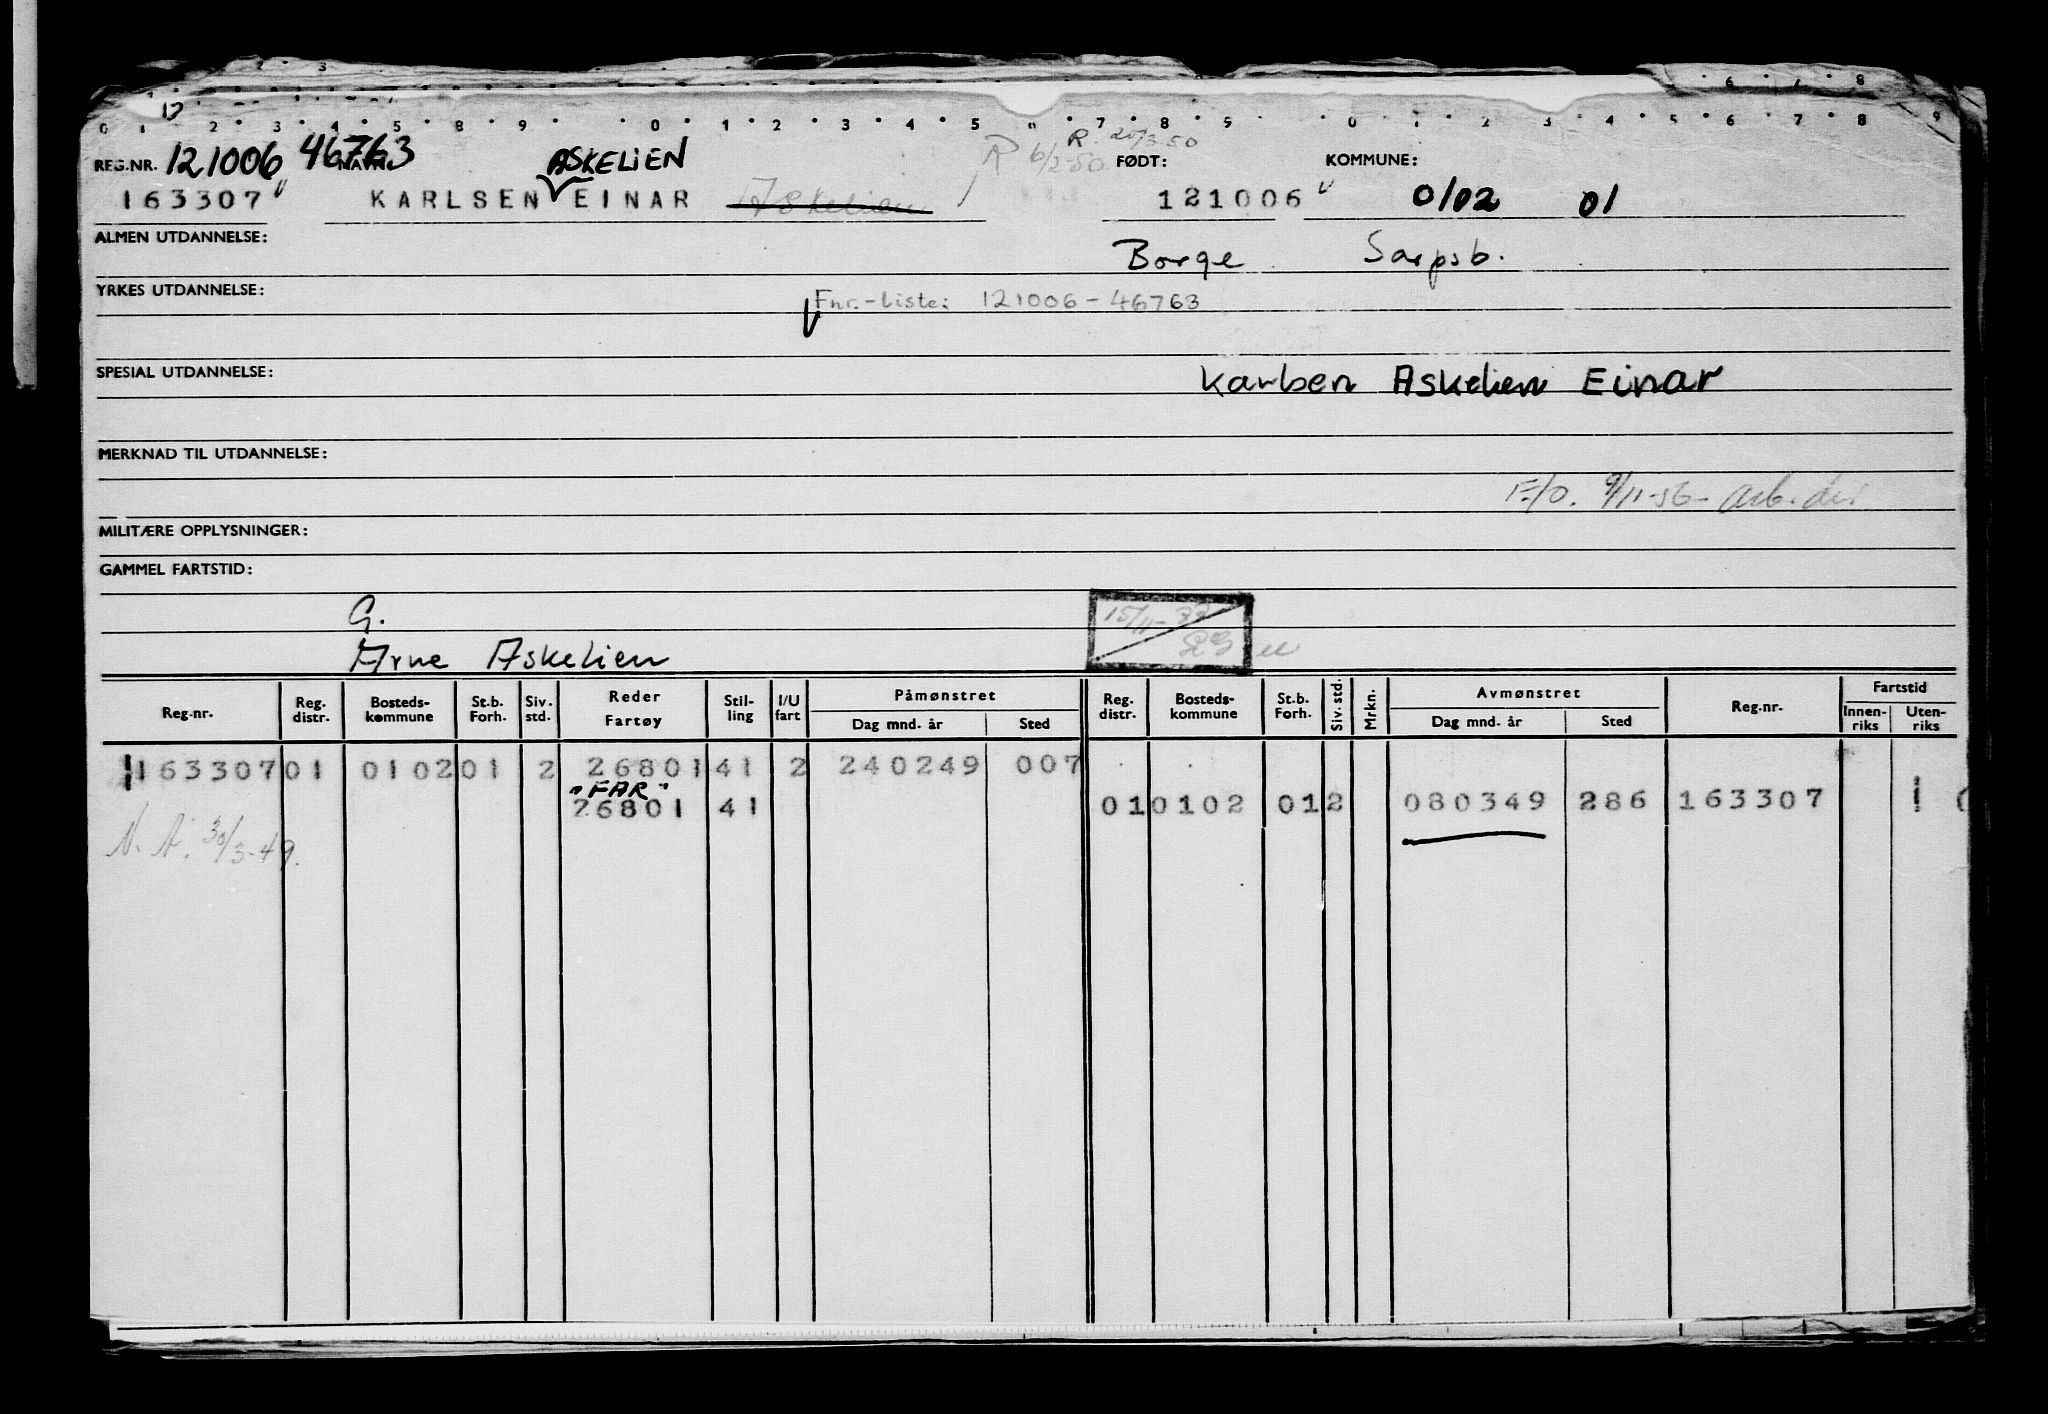 REG.NR. 121006 46763 NAVN: ASKELIEN R 6/2-50 R. 20/3.50 FØDT: KOMMUNE:
163307 KARLSEN EINAR Askelien 121006 0102 01
ALMEN UTDANNELSE:
Borge Sarpsb.
YRKES UTDANNELSE:
Fnr.-Liste: 121006-46763
SPESIAL UTDANNELSE:
Karlsen Askelien Einar
MERKNAD TIL UTDANNELSE:
F/O. 9/11-56-
MILITÆRE OPPLYSNINGER:
GAMMEL FARTSTID:
G. 15/11-77
Arne Askelien
Reg.nr. Reg. distr. Bosteds-kommune St.b. Forh. Siv. std. Reder Fartøy Stil-ling I/U fart Påmønstret Dag mnd. år Sted Reg. distr. Bosteds-kommune St.b. Forh. Siv. std. Mrkn. Avmønstret Dag mnd. år Sted Reg.nr. Fartstid Innen-riks Uten-riks
163307 01 0102 01 2 26801 41 2 240249 007
"FAR"
26801 41 01 0102 01 2 080349 286 163307 1
N.A. 30/3-49.